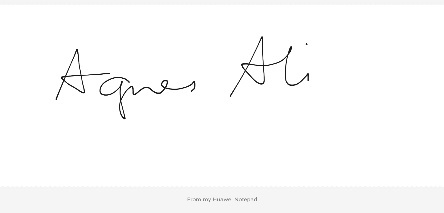 Agnes Ali
From my Huawei Notepad